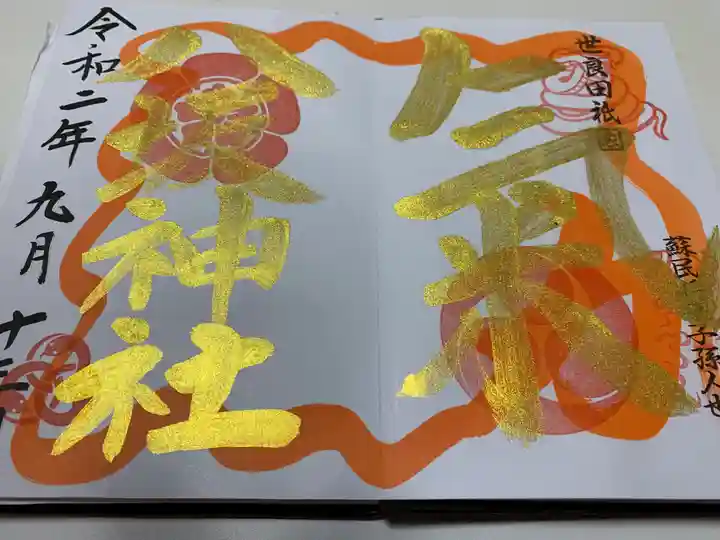 世良田祇園
氣
蘇民 子孫人也
八坂神社
令和二年 九月 十三